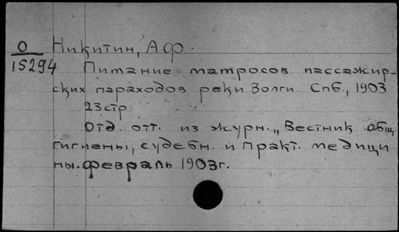 О Никитин, А.Ф.
15294 Питание матросов пассажир-
ских параходов реки Волги. Спб., 1903
23стр
Отд. отт. из журн. „Вестник общ.
гигиены, судебн. и практ. медици
ны. февраль 1903г.